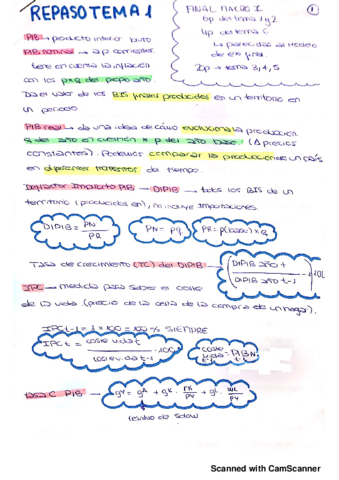 REPASO TEMA 1
FINAL MACRO I
①
6p de tema 1 y 2
4p de tema 6
↳ parecidas al modelo
de examen
20p → tema 3, 4, 5
PIB → producto interior bruto
PIB nominal → a p corrientes.
tiene en cuenta la inflación
con los p*q del propio año
Da el valor de los BIS finales producidos en un territorio en
un periodo
PIB real → da una idea de cómo evoluciona la producción
q del año en cuestión * p del año base (Δ precios
constantes). Podemos comparar la producción de un país
en diferentes momentos de tiempo.
Deflactor Implícito PIB → DIPIB → todos los BIS de un
territorio (producidos en), no incluye Importaciones.
DIPIB = PN / PR
PN = PQ
PR = P(base) x Q
Tasa de crecimiento (TC) del DIPIB →
DIPIB año t / DIPIB año t-1
IPC → medida para saber el coste
de la vida (precio de la cesta de la compra de un hogar).
IPC t-1 = 1 * 100 = 100% SIEMPRE
IPC t = coste vida t / coste v. da t-1 · 100
coste vida = PIBN
tasa C PIB → gY = gA + gK · rK/PY + gL · WL/PY
residuo de Solow
Scanned with CamScanner